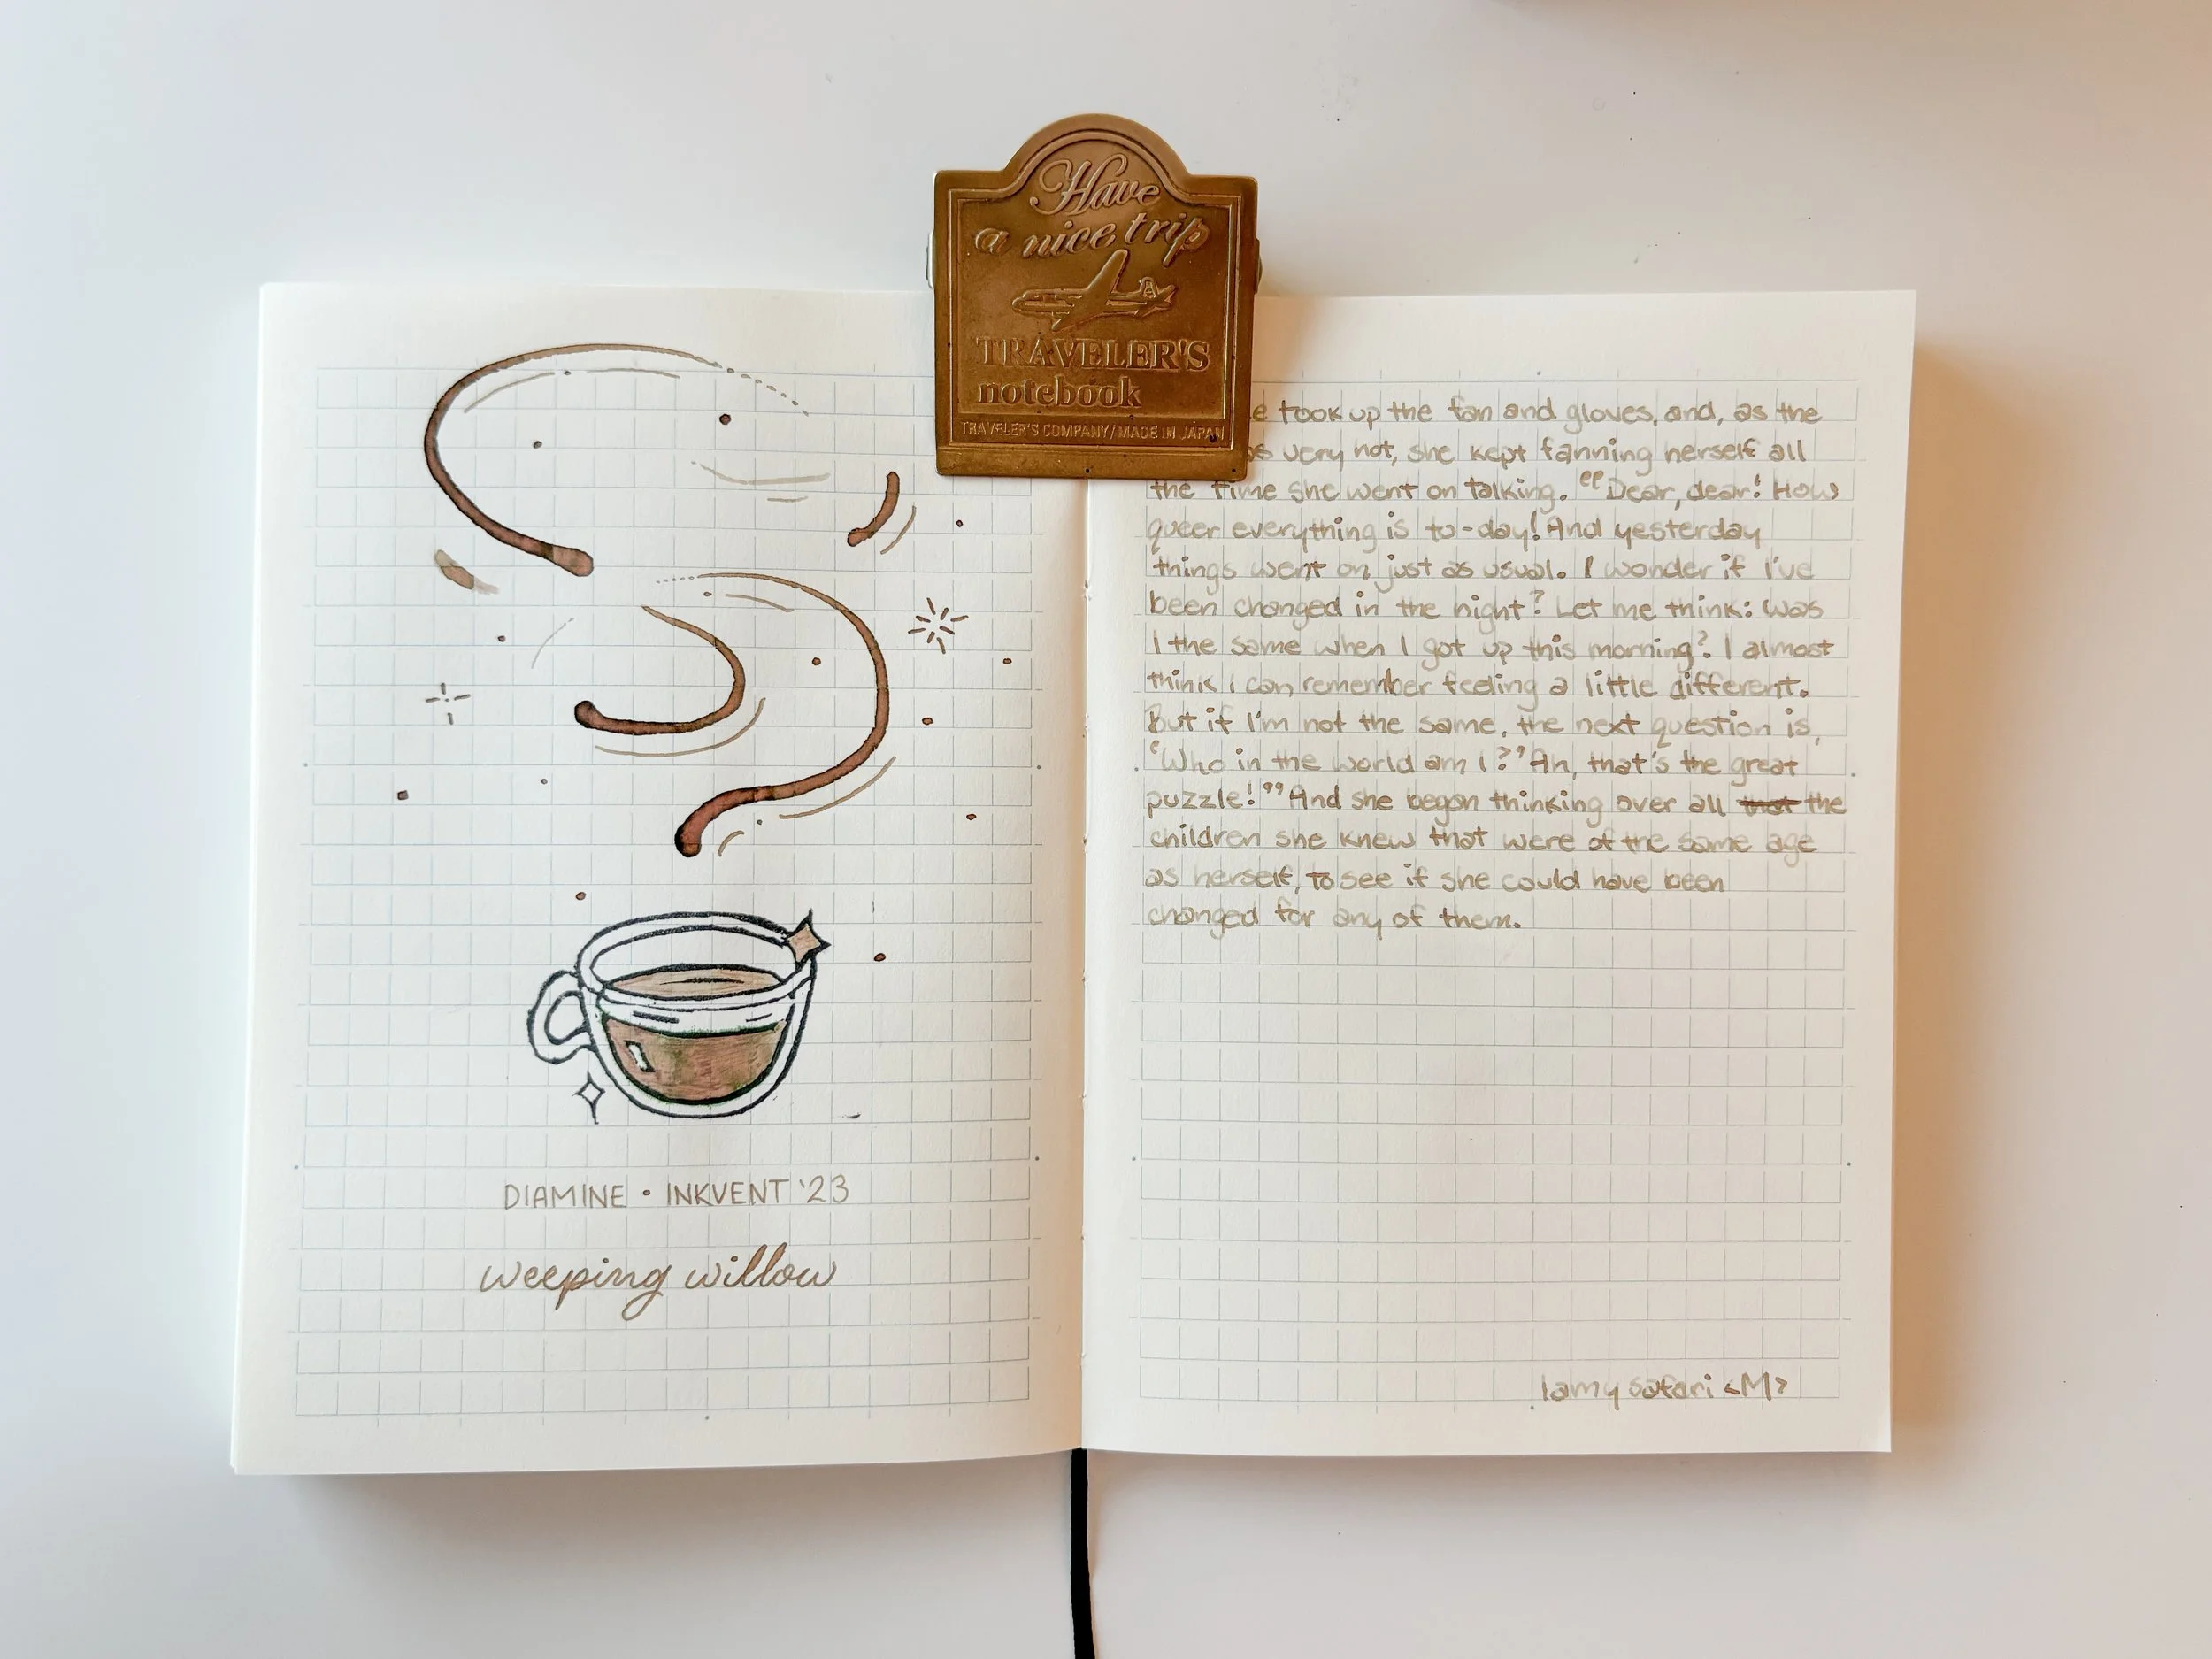 Have
a nice trip
TRAVELER'S
notebook
TRAVELER'S COMPANY/MADE IN JAPAN
DIAMINE • INKVENT '23
weeping willow
took up the fan and gloves, and, as the
very hot, she kept fanning herself all
the time she went on talking. “Dear, dear! How
queer everything is to-day! And yesterday
things went on just as usual. I wonder if I've
been changed in the night? Let me think: Was
I the same when I got up this morning? I almost
think I can remember feeling a little different.
But if I'm not the same, the next question is,
‘Who in the world am I?’ Ah, that's the great
puzzle!” And she began thinking over all that the
children she knew that were of the same age
as herself, to see if she could have been
changed for any of them.
lamy safari <M>